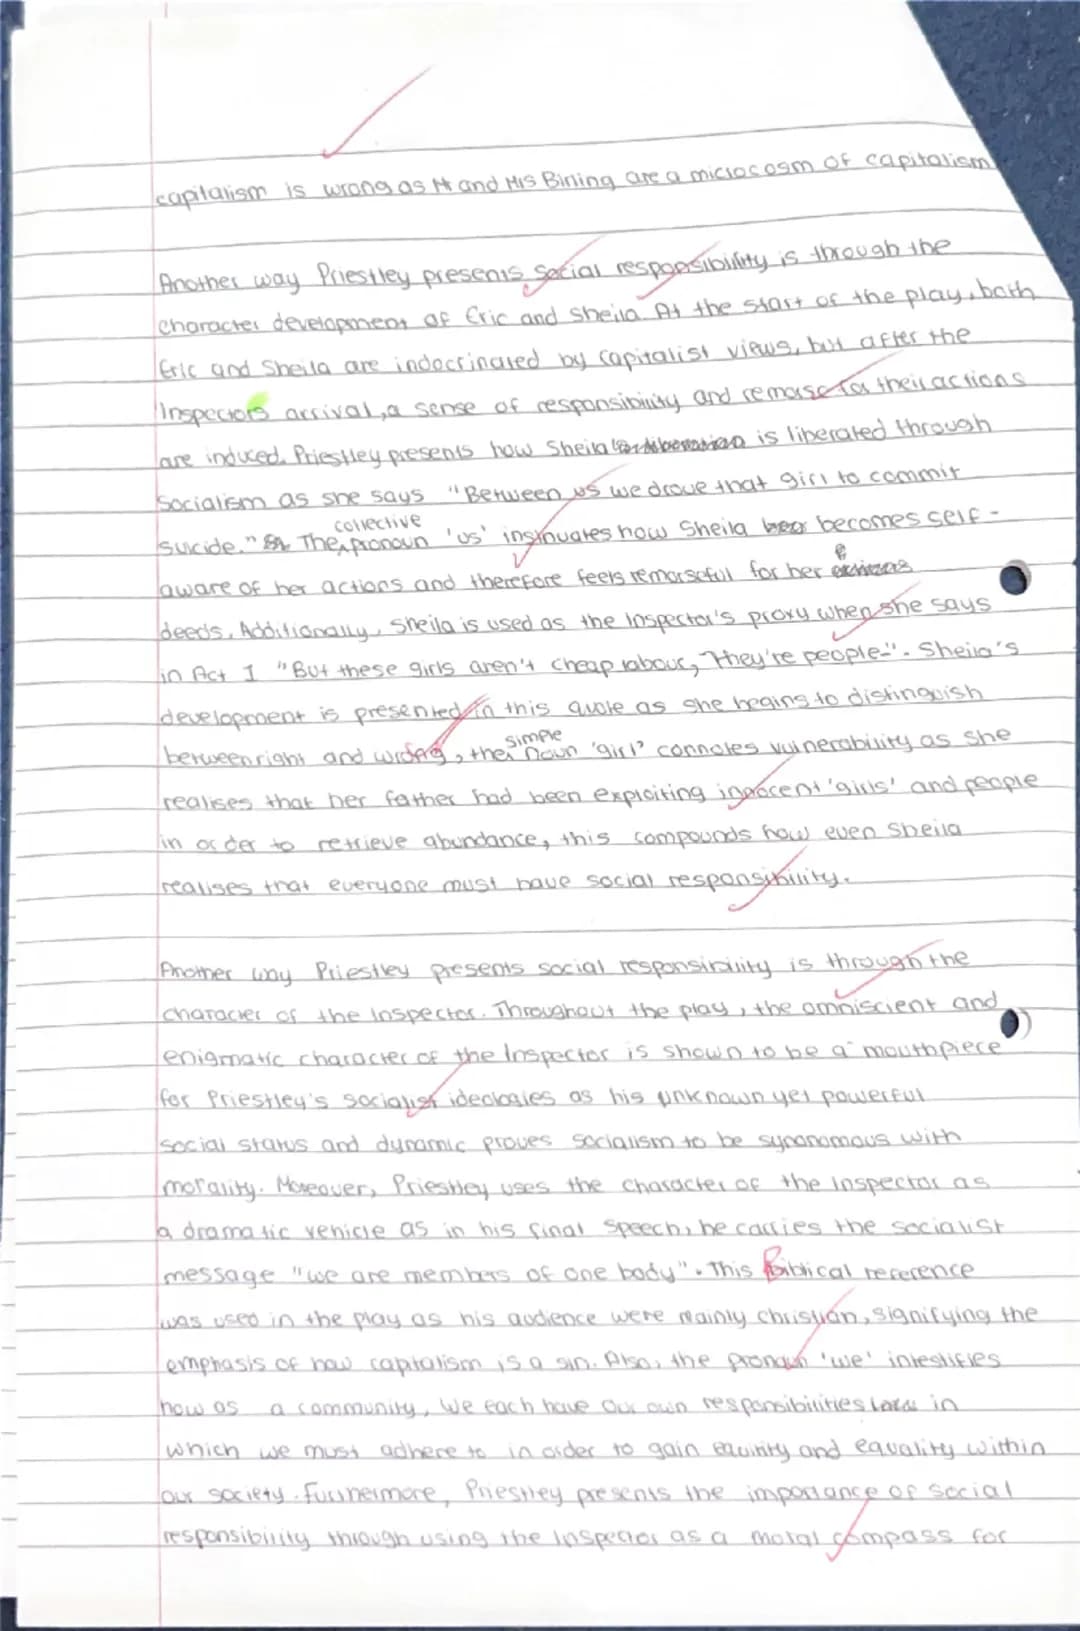 capitalism is wrong as Mr and Mrs Birling are a microcosm of capitalism
Another way Priestley presents social responsibility is through the
character development of Eric and Sheila. At the start of the play, both
Eric and Sheila are indocrinated by capitalist views, but after the
Inspectors arrival, a sense of responsibility and remorse for their actions
are induced. Priestley presents how Sheila is liberated through
Socialism as she says "Between us we drove that girl to commit
collective
suicide." The pronoun 'us' insinuates how Sheila becomes self-
aware of her actions and therefore feels remorseful for her
deeds. Additionally, Sheila is used as the Inspector's proxy when she says
in Act 1 "But these girls aren't cheap labour, They're people-". Sheila's
development is presented in this quote as she begins to distinguish
simple
between right and wrong, the noun 'girl' connotes vulnerability as she
realises that her father had been exploiting innocent 'girls' and people
in order to retrieve abundance, this compounds how even Sheila
realises that everyone must have social responsibility.
Another way Priestley presents social responsibility is through the
character of the Inspector. Throughout the play, the omniscient and
enigmatic character of the Inspector is shown to be a mouthpiece
for Priestley's socialist ideologies as his unknown yet powerful
social status and dynamic proves socialism to be synonomous with
morality. Moreover, Priestley uses the character of the Inspector as
a dramatic vehicle as in his final speech, he carries the socialist
message "we are members of one body". This Biblical reference
was used in the play as his audience were mainly christian, signifying the
emphasis of how capitalism is a sin. Also, the pronoun 'we' intestifies
how as a community, we each have our own responsibilities in
which we must adhere to in order to gain equitity and equality within
our society. Furthermore, Priestley presents the importance of social
responsibility through using the Inspector as a moral compass for